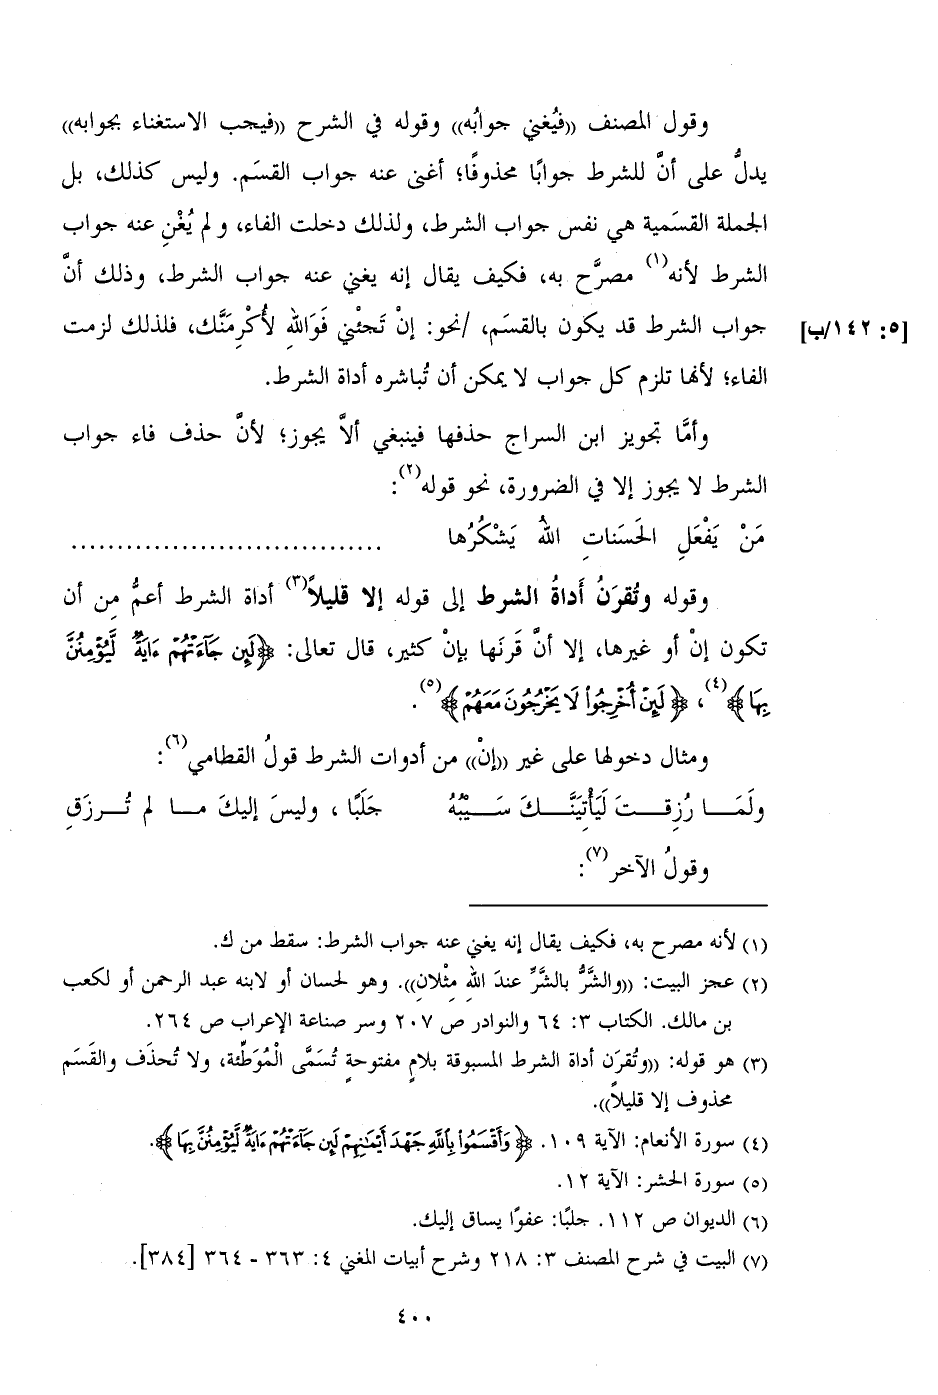 وقول المصنف ((فيُغني جوابُه)) وقوله في الشرح ((فيجب الاستغناء بجوابه))
يدلُّ على أنَّ للشرط جوابًا محذوفًا؛ أغنى عنه جواب القسَم. وليس كذلك، بل
الجملة القسَمية هي نفس جواب الشرط، ولذلك دخلت الفاء، و لم يُغْنِ عنه جواب
الشرط لأنه(١) مصرَّح به، فكيف يقال إنه يغني عنه جواب الشرط، وذلك أنَّ
جواب الشرط قد يكون بالقسَم، /نحو: إنْ تَجئْني فَوَاللهِ لأُكْرِمَنَّك، فلذلك لزمت [٥: ١٤٢/ب]
الفاء؛ لأنها تلزم كل جواب لا يمكن أن تُباشره أداة الشرط.
وأمَّا تجويز ابن السراج حذفها فينبغي ألاَّ يجوز؛ لأنَّ حذف فاء جواب
الشرط لا يجوز إلا في الضرورة، نحو قوله(٢):
مَنْ يَفْعَلِ الحَسَناتِ اللهُ يَشْكُرُها ..................................
وقوله وتُقرَنُ أَداةُ الشرط إلى قوله إلا قليلاً(٣) أداة الشرط أعمُّ مِن أن
تكون إنْ أو غيرها، إلا أنَّ قَرنَها بإنْ كثير، قال تعالى: ﴿لَئِن جَآءَتْهُمْ ءَايَةٌ لَّيُؤْمِنُنَّ
بِهَا﴾(٤)، ﴿لَئِنْ أُخْرِجُوا۟ لَا يَخْرُجُونَ مَعَهُمْ﴾(٥).
ومثال دخولها على غير ((إنْ)) من أدوات الشرط قولُ القطامي(٦):
ولَمَــا رُزِقــتَ لَيَأْتِيَنَّــكَ سَــيْبُهُ جَلَبًا ، وليسَ إليكَ مــا لم تُــرزَقِ
وقولُ الآخر(٧):
(١) لأنه مصرح به، فكيف يقال إنه يغني عنه جواب الشرط: سقط من ك.
(٢) عجز البيت: ((والشَّرُّ بالشَّرِّ عندَ اللهِ مِثْلانِ)). وهو لحسان أو لابنه عبد الرحمن أو لكعب
بن مالك. الكتاب ٣: ٦٤ والنوادر ص ٢٠٧ وسر صناعة الإعراب ص ٢٦٤.
(٣) هو قوله: ((وتُقرَن أداة الشرط المسبوقة بلامٍ مفتوحةٍ تُسَمَّى الْمُوَطِّئة، ولا تُحذَف والقَسَم
محذوف إلا قليلاً)).
(٤) سورة الأنعام: الآية ١٠٩. ﴿وَأَقْسَمُوا۟ بِٱللَّهِ جَهْدَ أَيْمَٰنِهِمْ لَئِن جَآءَتْهُمْ ءَايَةٌ لَّيُؤْمِنُنَّ بِهَا﴾.
(٥) سورة الحشر: الآية ١٢.
(٦) الديوان ص ١١٢. جلبًا: عفوًا يساق إليك.
(٧) البيت في شرح المصنف ٣: ٢١٨ وشرح أبيات المغني ٤: ٣٦٣ - ٣٦٤ [٣٨٤].
٤٠٠